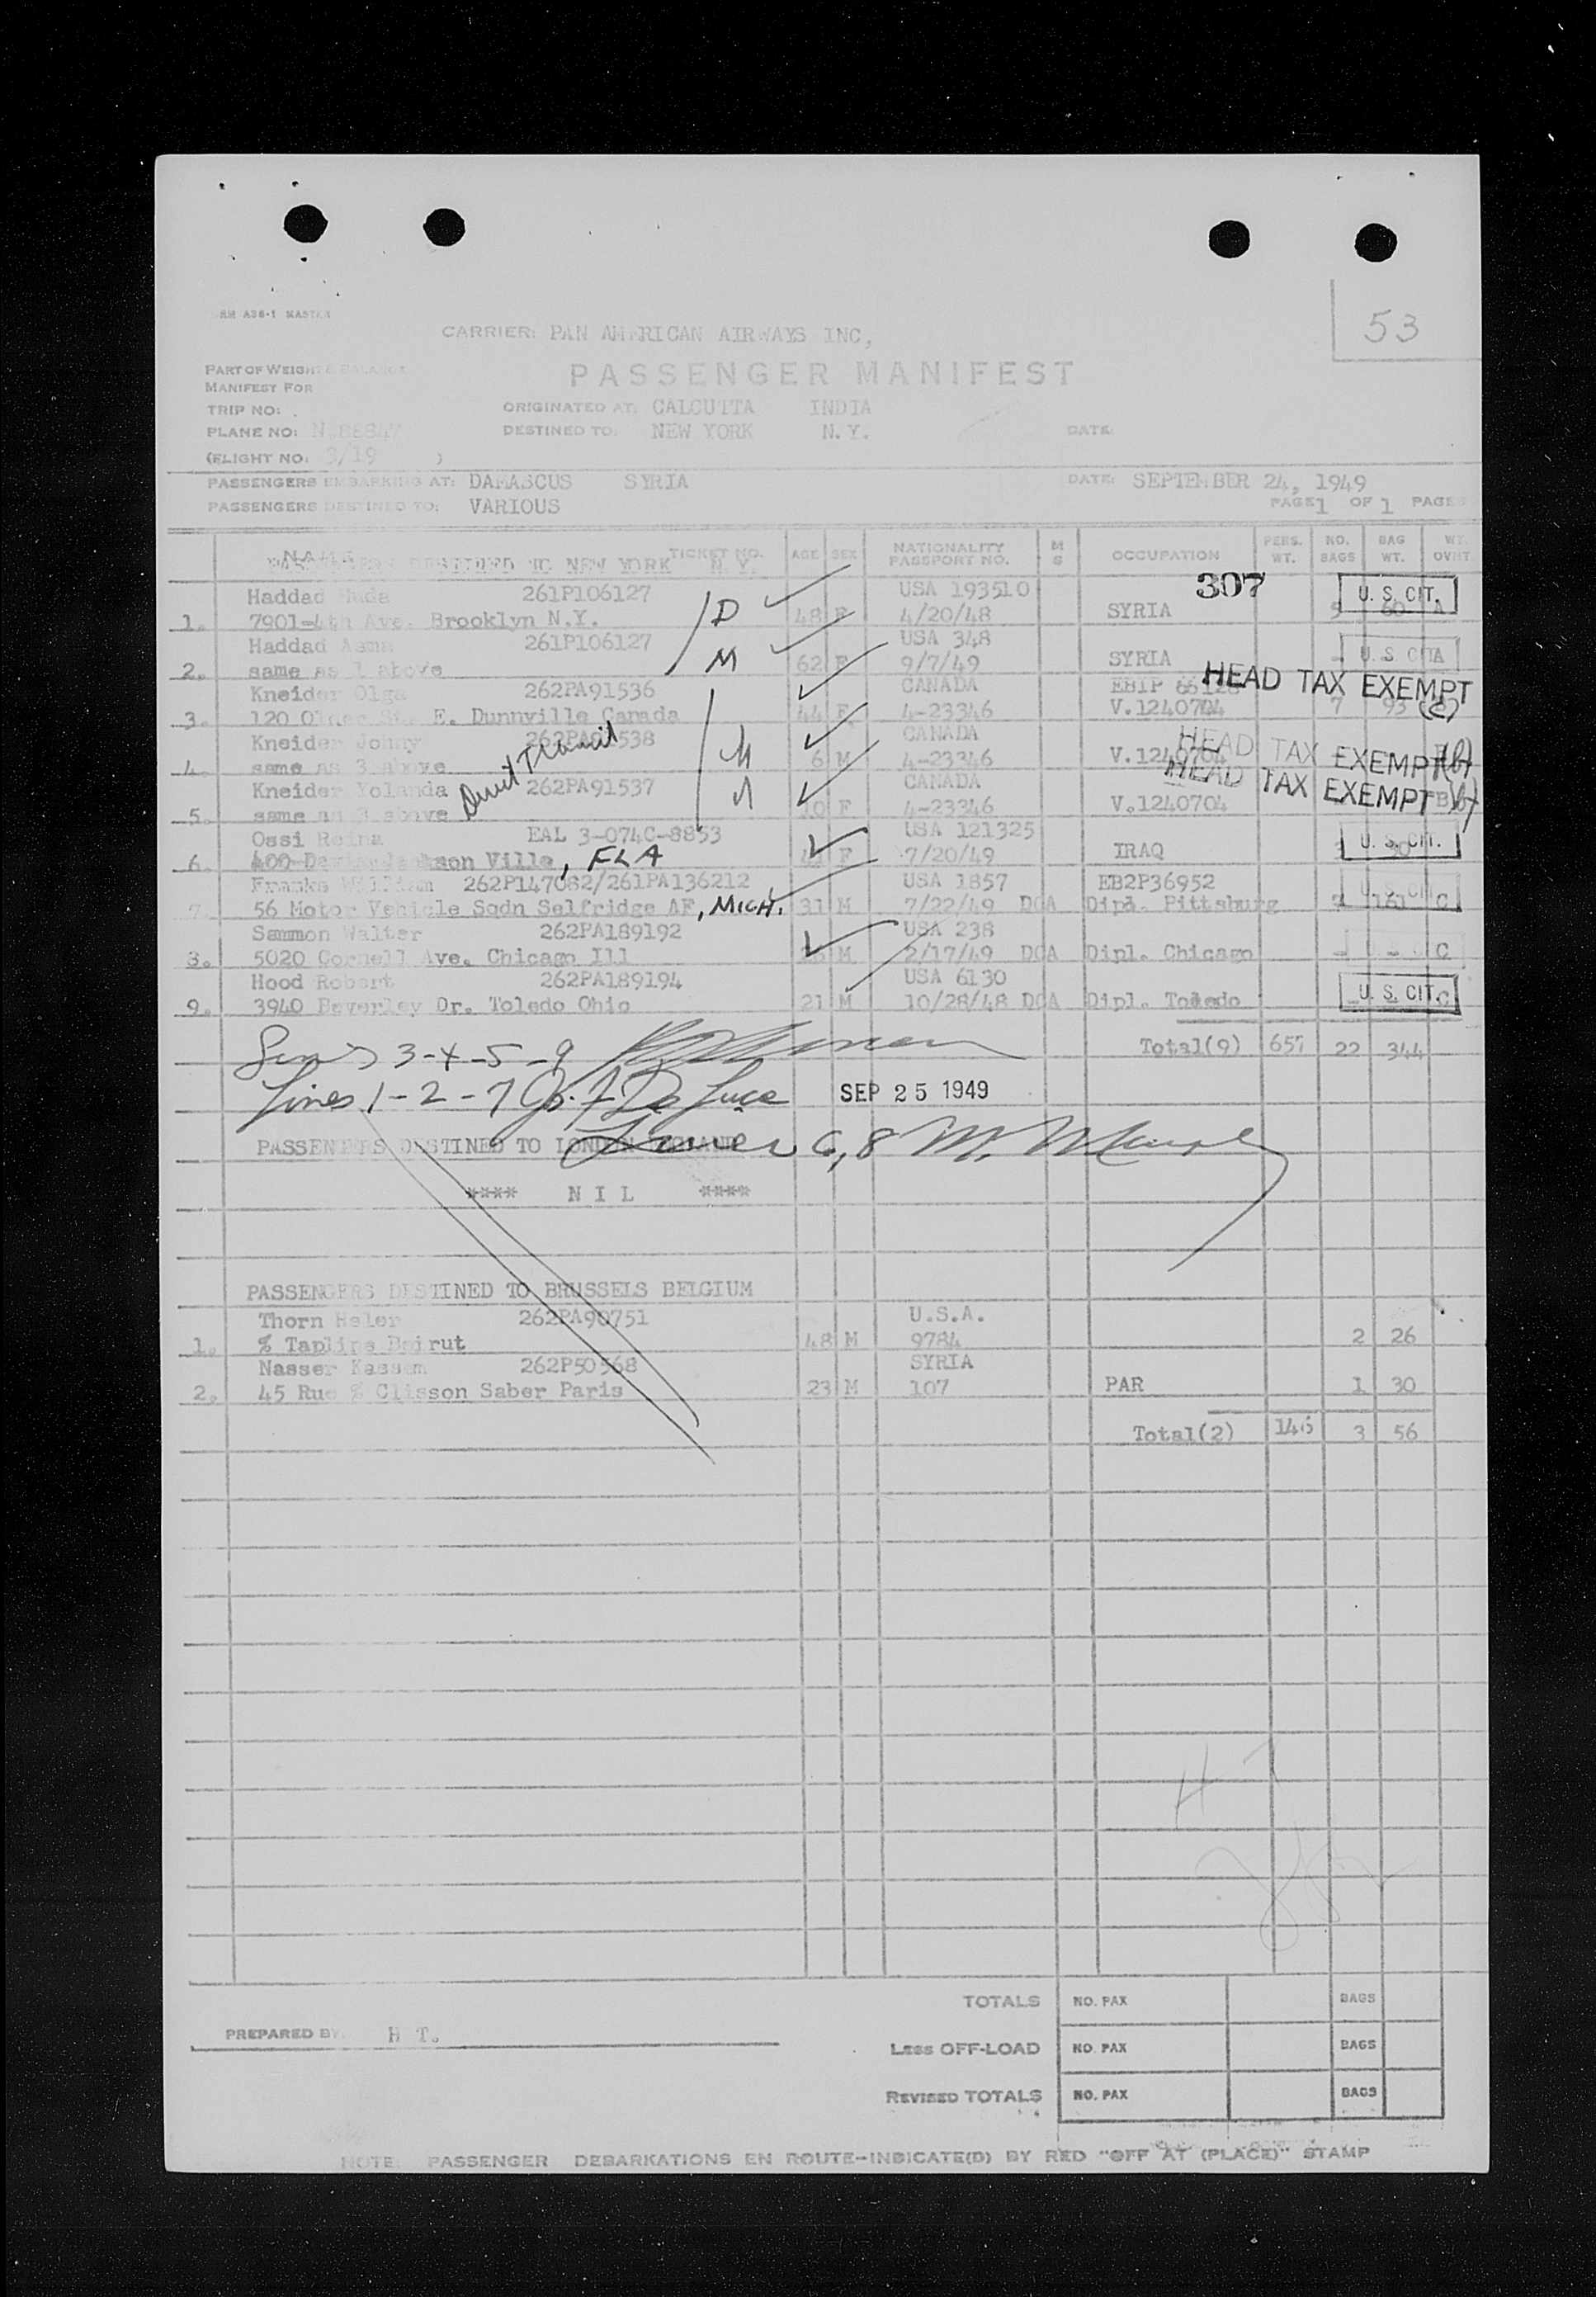 CARRIER: PAN AMERICAN AIRWAYS INC,
53
PART OF WEIGHT & BALANCE
PASSENGER MANIFEST
MANIFEST FOR
TRIP NO:
ORIGINATED AT: CALCUTTA INDIA
PLANE NO:
DESTINED TO: NEW YORK N.Y.
DATE
(FLIGHT NO: 3/19 )
PASSENGERS EMBARKING AT: DAMASCUS SYRIA
DATE: SEPTEMBER 24, 1949
PASSENGERS DESTINED TO: VARIOUS
PAGE 1 OF 1 PAGES
NAME TICKET NO. AGE SEX NATIONALITY PASSPORT NO. M S OCCUPATION PERS. WT. NO. BAGS BAG WT. WT. OVHT
PASSENGERS DESTINED TO NEW YORK N.Y.
307
Haddad Huda 261P106127 USA 193510 U. S. CIT.
1. 7901-4th Ave. Brooklyn N.Y. D 48 F 4/20/48 SYRIA 5 60 A
Haddad Asma 261P106127 USA 348
2. same as 1 above M 62 F 9/7/49 SYRIA - U. S. CIT A
HEAD TAX EXEMPT
Kneider Olga 262PA91536 CANADA
3. E. Dunnville Canada 44 F 4-23346 V.1240704 7 93 (c)
Kneider Johny CANADA
4. same as 3 above M 6 M 4-23346 V.1240704 HEAD TAX EXEMPT (b)
Kneider Yolanda 262PA91537 CANADA HEAD TAX EXEMPT B (b)
5. same as 3 above 10 F 4-23346 V.1240704
Ossi Regina EAL 3-074C-8853 USA 121325 U. S. CIT.
6. 400 Ville, FLA F 7/20/49 IRAQ
Franks William 262P147082/261PA136212 USA 1857 EB2P36952
7. 56 Motor Vehicle Sqdn Selfridge AF, MICH. 31 M 7/22/49 DCA Dipl. Pittsburg 161 C
Sammon Walter 262PA189192 USA 238
8. 5020 Cornell Ave. Chicago Ill M 2/17/49 DCA Dipl. Chicago - - C
Hood Robert 262PA189194 USA 6130
9. 3940 Beverley Dr. Toledo Ohio 21 M 10/28/48 DCA Dipl. Toledo U. S. CIT. C
Total(9) 657 22 344
Lines 3-4-5-9
Lines 1-2-7 De Luca SEP 25 1949
PASSENGERS DESTINED TO LONDON ENGLAND
Lines 6,8 M.
**** N I L ****
PASSENGERS DESTINED TO BRUSSELS BELGIUM
Thorn 262PA90751 U.S.A.
1. % Tapline Beirut 48 M 9784 2 26
Nasser Kassem 262P50568 SYRIA
2. 45 Rue % Clisson Saber Paris 23 M 107 PAR 1 30
Total(2) 146 3 56
TOTALS NO. PAX BAGS
PREPARED BY: H T.
Less OFF-LOAD NO. PAX BAGS
REVISED TOTALS NO. PAX BAGS
NOTE: PASSENGER DEBARKATIONS EN ROUTE-INDICATE(D) BY RED "OFF AT (PLACE)" STAMP